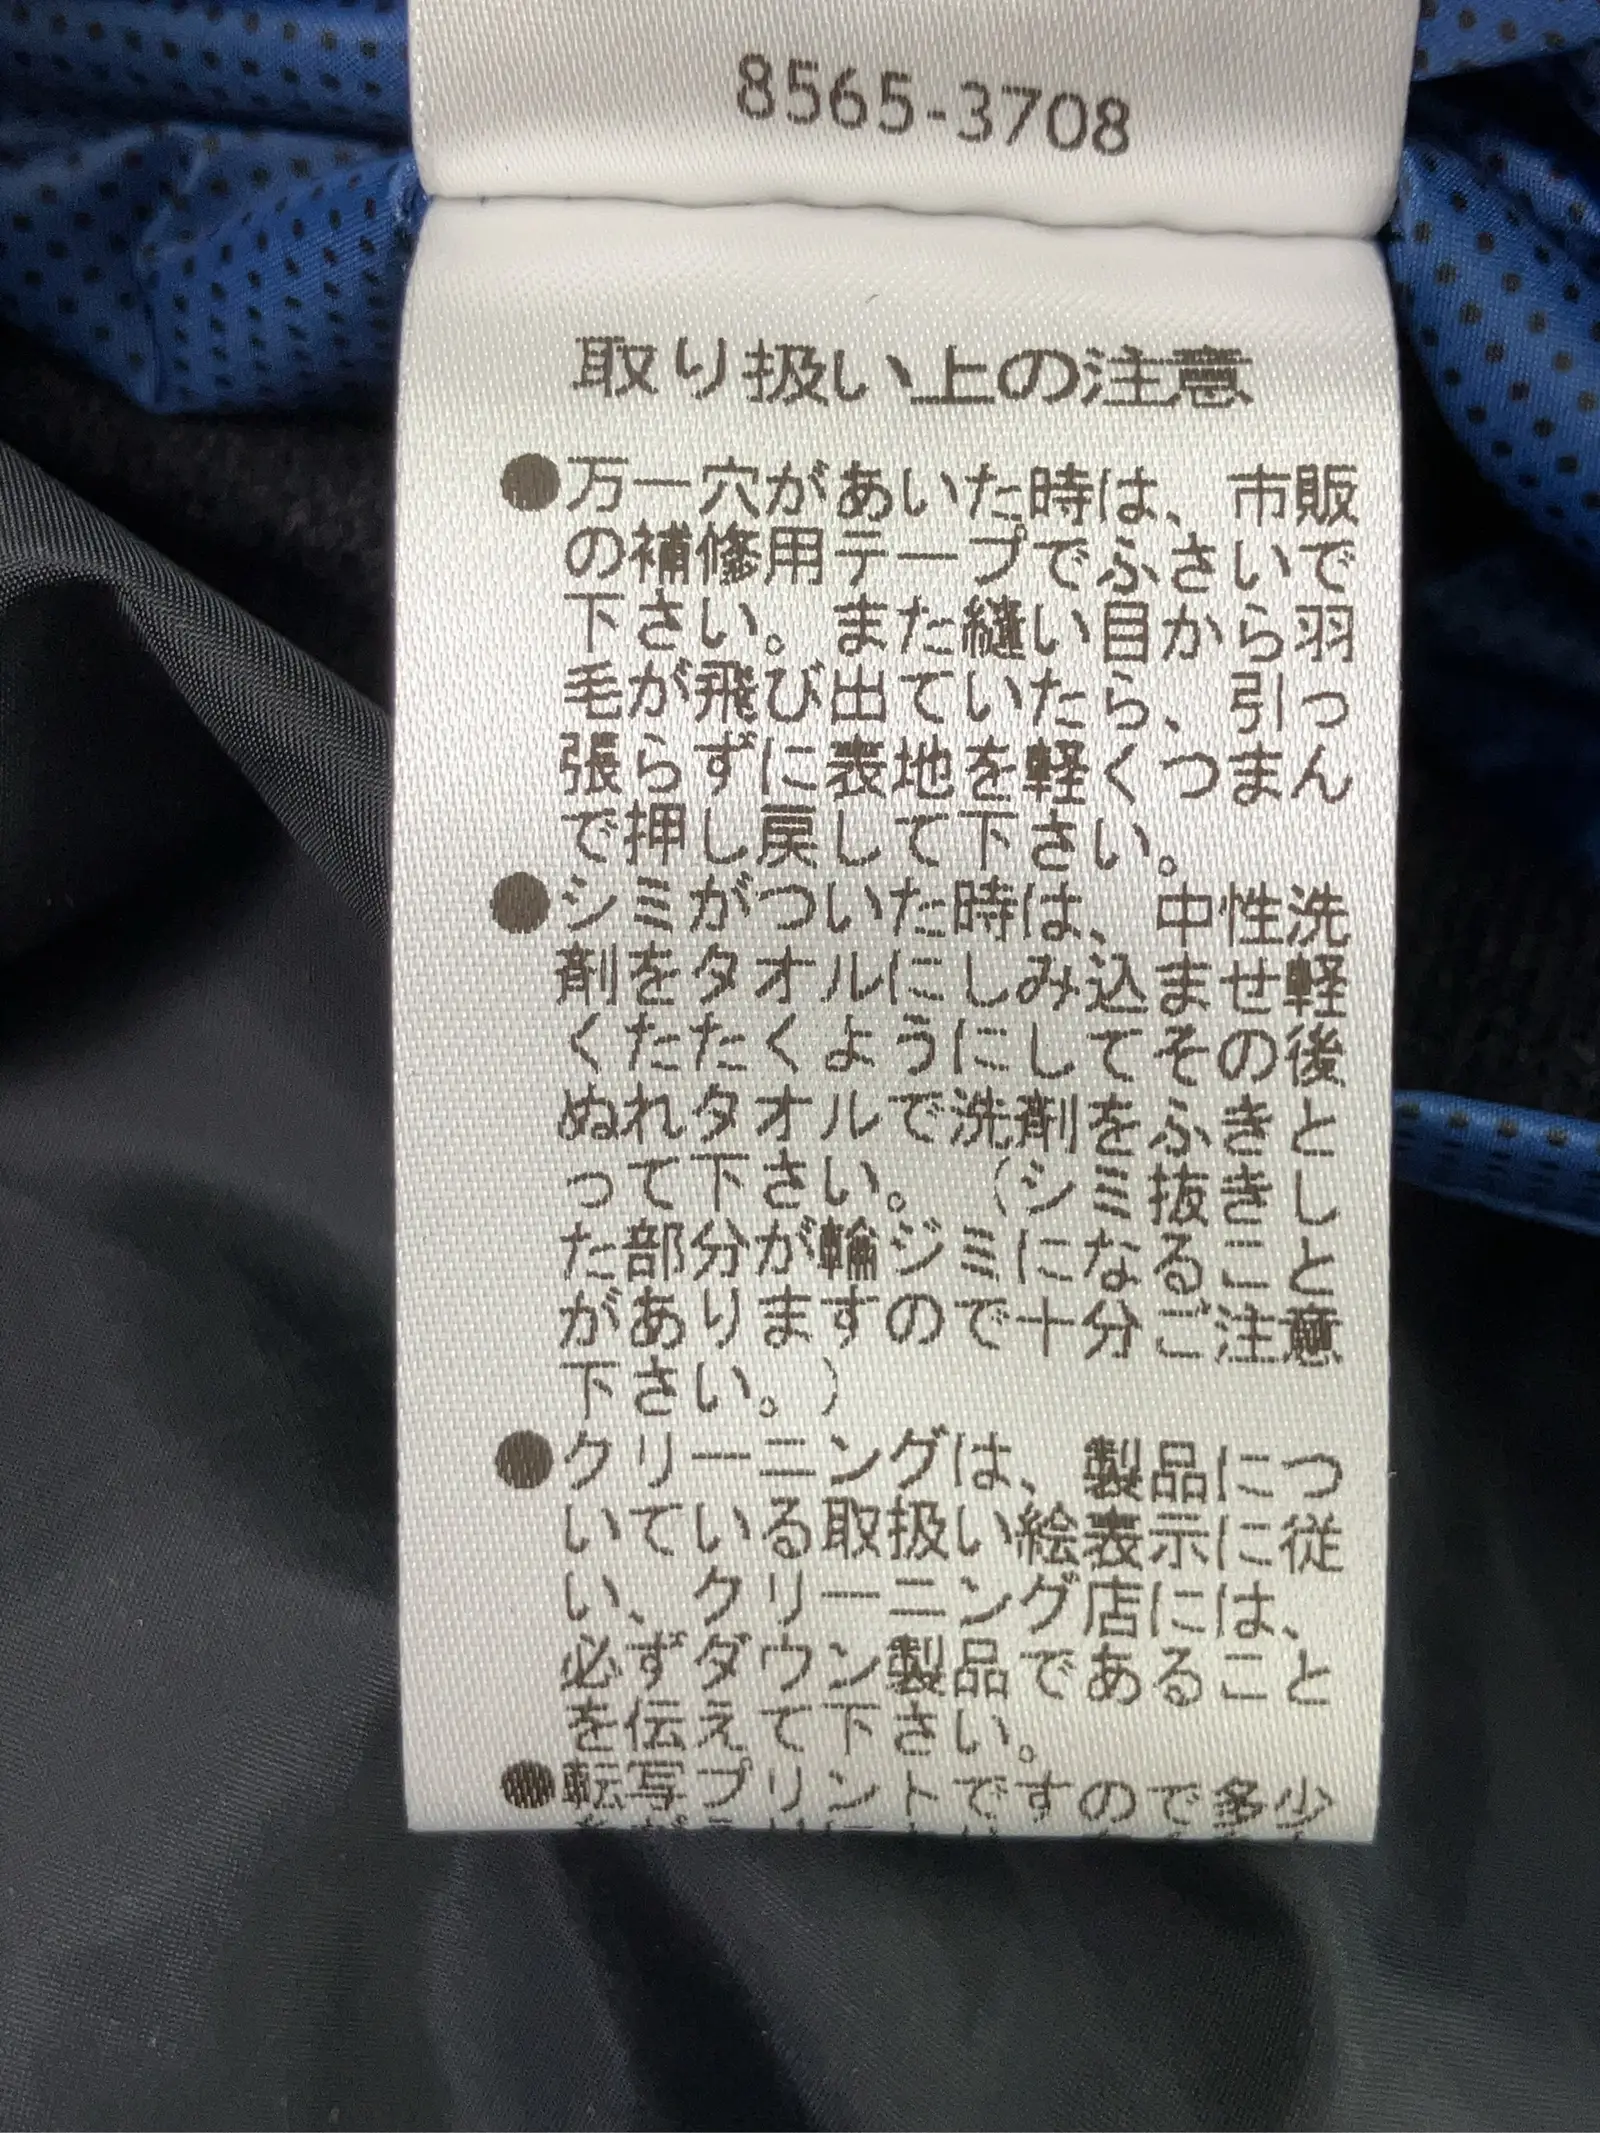 8565-3708
取り扱い上の注意
●万一穴があいた時は、市販
の補修用テープでふさいで
下さい。また縫い目から羽
毛が飛び出ていたら、引っ
張らずに表地を軽くつまん
で押し戻して下さい。
●シミがついた時は、中性洗
剤をタオルにしみ込ませ軽
くたたくようにしてその後
ぬれタオルで洗剤をふきと
って下さい。（シミ抜きし
た部分が輪ジミになること
がありますので十分ご注意
下さい。）
●クリーニングは、製品につ
いている取扱い絵表示に従
い、クリーニング店には、
必ずダウン製品であること
を伝えて下さい。
●転写プリントですので多少